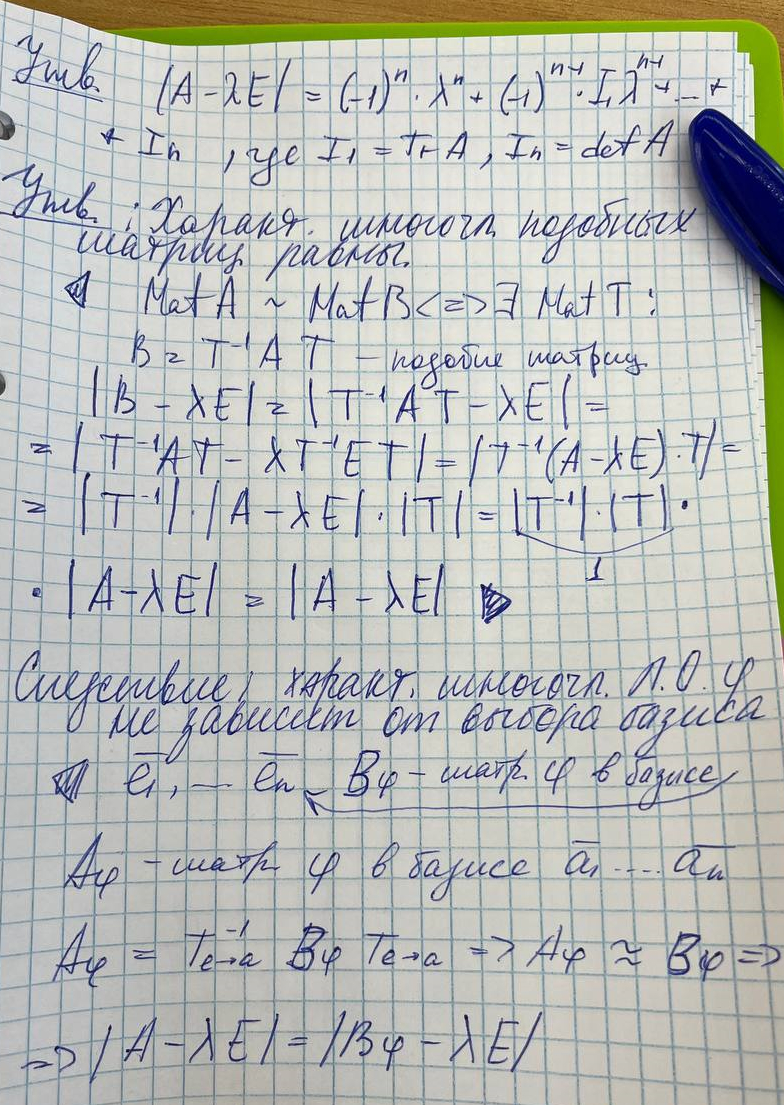 Утв. |A - λE| = (-1)ⁿ · λⁿ + (-1)ⁿ⁻¹ · I₁ λⁿ⁻¹ + ... +
+ Iₙ , где I₁ = Tr A , Iₙ = det A
Утв. : Характ. многочл. подобных
матриц равны.
◁ Mat A ~ Mat B <=> ∃ Mat T :
B = T⁻¹ A T - подобие матриц
|B - λE| = |T⁻¹ A T - λE| =
= |T⁻¹AT - λT⁻¹ET| = |T⁻¹(A - λE) · T| =
= |T⁻¹| · |A - λE| · |T| = |T⁻¹| · |T| ·
1
· |A - λE| = |A - λE| ▷
Следствие: характ. многочл. Л.О. φ
не зависит от выбора базиса
◁ e̅₁, ... e̅ₙ Bφ - матр. φ в базисе
Aφ - матр φ в базисе a̅₁ .... a̅ₙ
Aφ = T⁻¹e→a Bφ Te→a => Aφ ≈ Bφ =>
=> |A - λE| = |Bφ - λE|